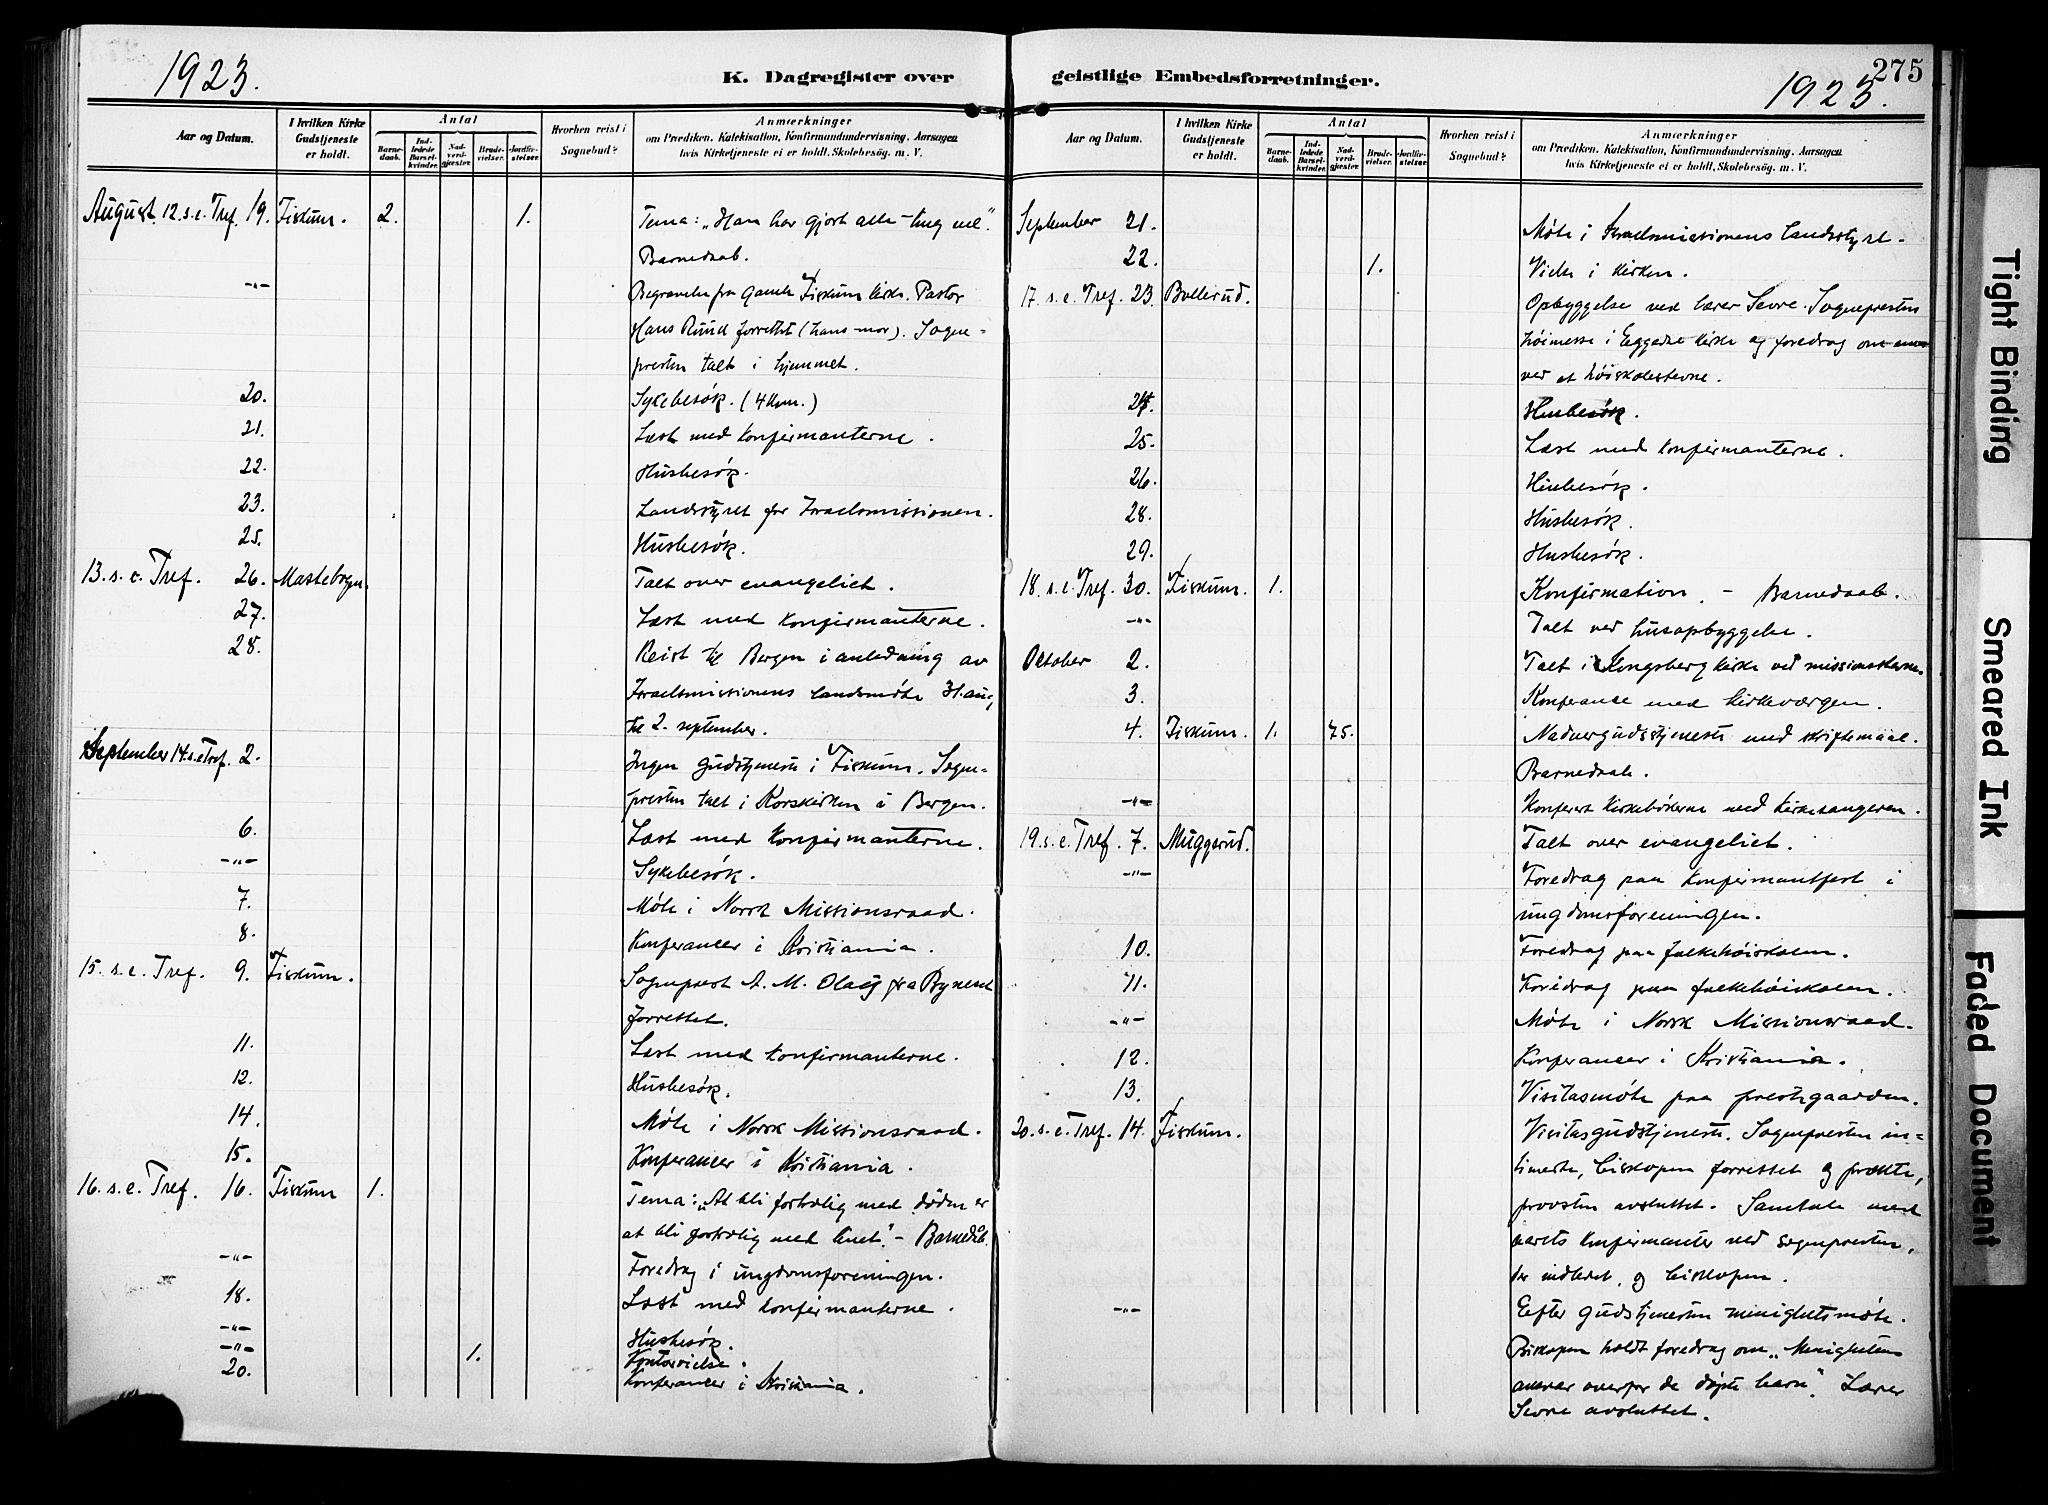 1923.
K. Dagregister over
Aar og Datum.
I hvilken Kirke Gudstjeneste er holdt.
Antal
Barnedaab.
Indledede Barselkvinder.
Nadverdgjester.
Brudevielser.
Jordfæstelser.
Hvorhen reist i Sognebud?
Anmærkninger
om Prædiken, Katekisation, Konfirmandundervisning. Aarsagen
hvis Kirketjeneste ei er holdt. Skolebesög. m. V.
August 12.s.e. Tref. 19. Fiskum. 2. 1. Tema: „Han har gjort alle ting vel“.
Barnedaab.
-"- Begravelse fra Gamle Fiskum kirke. Pastor
Hans Ruud forrettet (hans mor). Sogne-
presten talt i hjemmet.
20. Sykebesøk. (4 km.)
21. Læst med konfirmanterne.
22. Husbesøk.
23. Landsstyret for Israelsmissionen.
25. Husbesøk.
13. s. e. Tref. 26. Mastebogen. Talt over evangeliet.
27. Læst med konfirmanterne.
28. Reist til Bergen i anledning av
Israelsmissionens landsmøte 31. aug.
til 2. september.
September 14.s.e.Tref. 2. Ingen gudstjeneste i Fiskum. Sogne-
presten talt i Korskirken i Bergen.
6. Læst med konfirmanterne.
-"- Sykebesøk.
7. Møte i Norsk Missionsraad.
8. Konferancer i Kristiania.
15. s. e. Tref. 9. Fiskum. Sogneprest A. M. Olay fra Byneset
forrettet.
11. Læst med konfirmanterne.
12. Husbesøk.
14. Møte i Norsk Missionsraad.
15. Konferancer i Kristiania.
16. s. e. Tref. 16. Fiskum 1. Tema: „At bli fortrolig med døden er
at bli fortrolig med livet“. - Barnedåb.
-"- Foredrag i ungdomsforeningen.
18. Læst med konfirmanterne.
-"- Husbesøk.
-"- 1. Kontorvielse.
20. Konferancer i Kristiania.
geistlige Embedsforretninger.
275
1923.
Aar og Datum.
I hvilken Kirke Gudstjeneste er holdt.
Antal
Barnedaab.
Indledede Barselkvinder.
Nadverdgjester.
Brudevielser.
Jordfæstelser.
Hvorhen reist i Sognebud?
Anmærkninger
om Prædiken, Katekisation, Konfirmandundervisning. Aarsagen
hvis Kirketjeneste ei er holdt, Skolebesög. m. V.
September 21. Møte i Israelsmissionens landsstyre.
22. 1. Vielse i kirken.
17. s. e. Tref. 23. Bollerud. Opbyggelse ved lærer Sevre. Sognepresten
høimesse i Eggedal kirke og foredrag om
ved et høiskolestevne.
24. Husbesøk.
25. Læst med konfirmanterne.
26. Husbesøk.
28. Husbesøk.
29. Husbesøk.
18. s. e. Tref. 30. Fiskum. 1. Konfirmation. - Barnedaab.
-"- Talt ved husopbyggelse.
October 2. Talt i Kongsberg kirke ved missionsstevne.
3. Konferanse med kirkeværgen.
4. Fiskum. 1. 75. Nadvergudstjeneste med skriftemaal.
Barnedaab.
-"- Konferert kirkebøkerne med kirkesangeren.
19. s. e. Tref. 7. Muggerud. Talt over evangeliet.
-"- Foredrag paa konfirmantfest i
ungdomsforeningen.
10. Foredrag paa folkehøiskolen.
11. Foredrag paa folkehøiskolen.
-"- Møte i Norsk Missionsraad.
12. Konferancer i Kristiania.
13. Visitasmøte paa prestegaarden.
20. s. e. Tref. 14. Fiskum. Visitasgudstjeneste. Sognepresten in-
timerte, biskopen forrettet og prækte,
provsten avsluttet. Samtale med
aarets konfirmanter ved sognepresten,
der indledet, og biskopen.
-"- Efter gudstjenesten menighetsmøte.
Biskopen holdt foredrag om „Menighetens
ansvar overfor de døpte barn“. Lærer
Sevre avsluttet.
Tight Binding
Smeared Ink
Faded Document